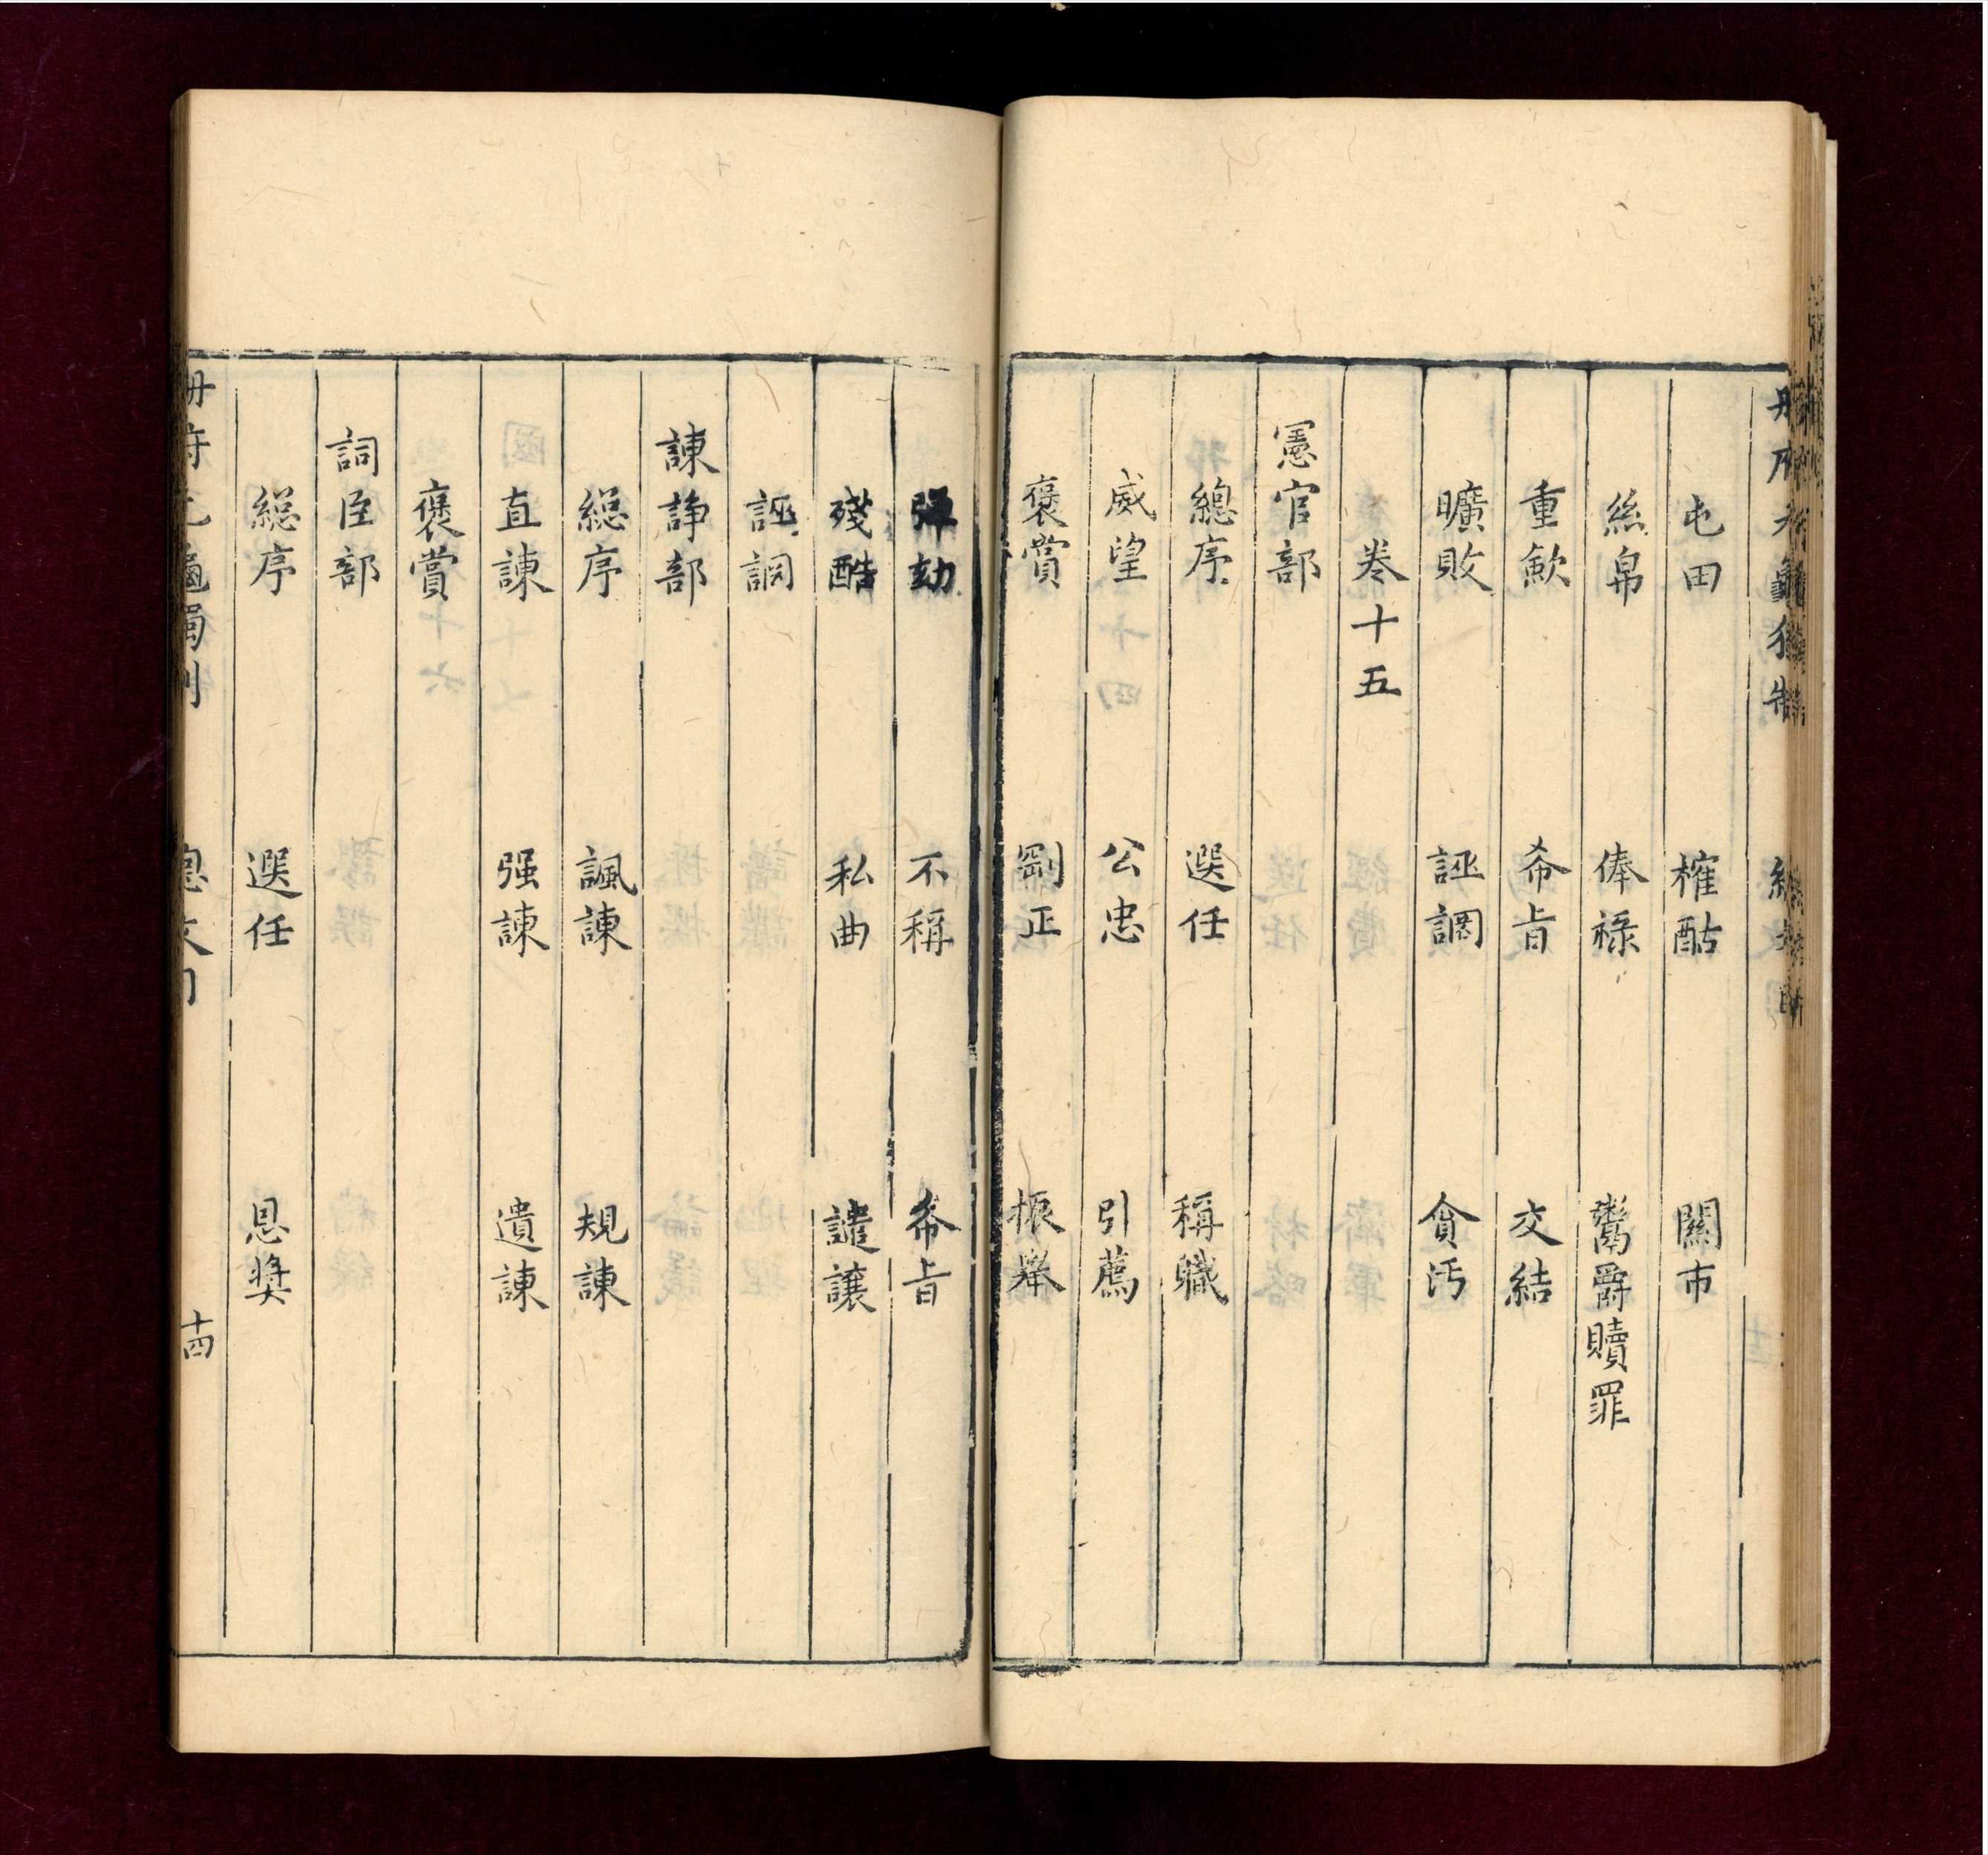 屯田 榷酤 關市
絲帛 俸祿 鬻爵贖罪
重歛 希㫖 交結
曠敗 誣調 貪汚
卷十五
憲官部
總序 選任 稱職
威望 公忠 引薦
褒賞 剛正 振舉
彈劾 不稱 希㫖
殘酷 私曲 譴讓
誣調
諫諍部
緫序 諷諫 規諫
直諫 强諫 遺諫
褒賞
詞臣部
緫序 選任 恩奬
十四